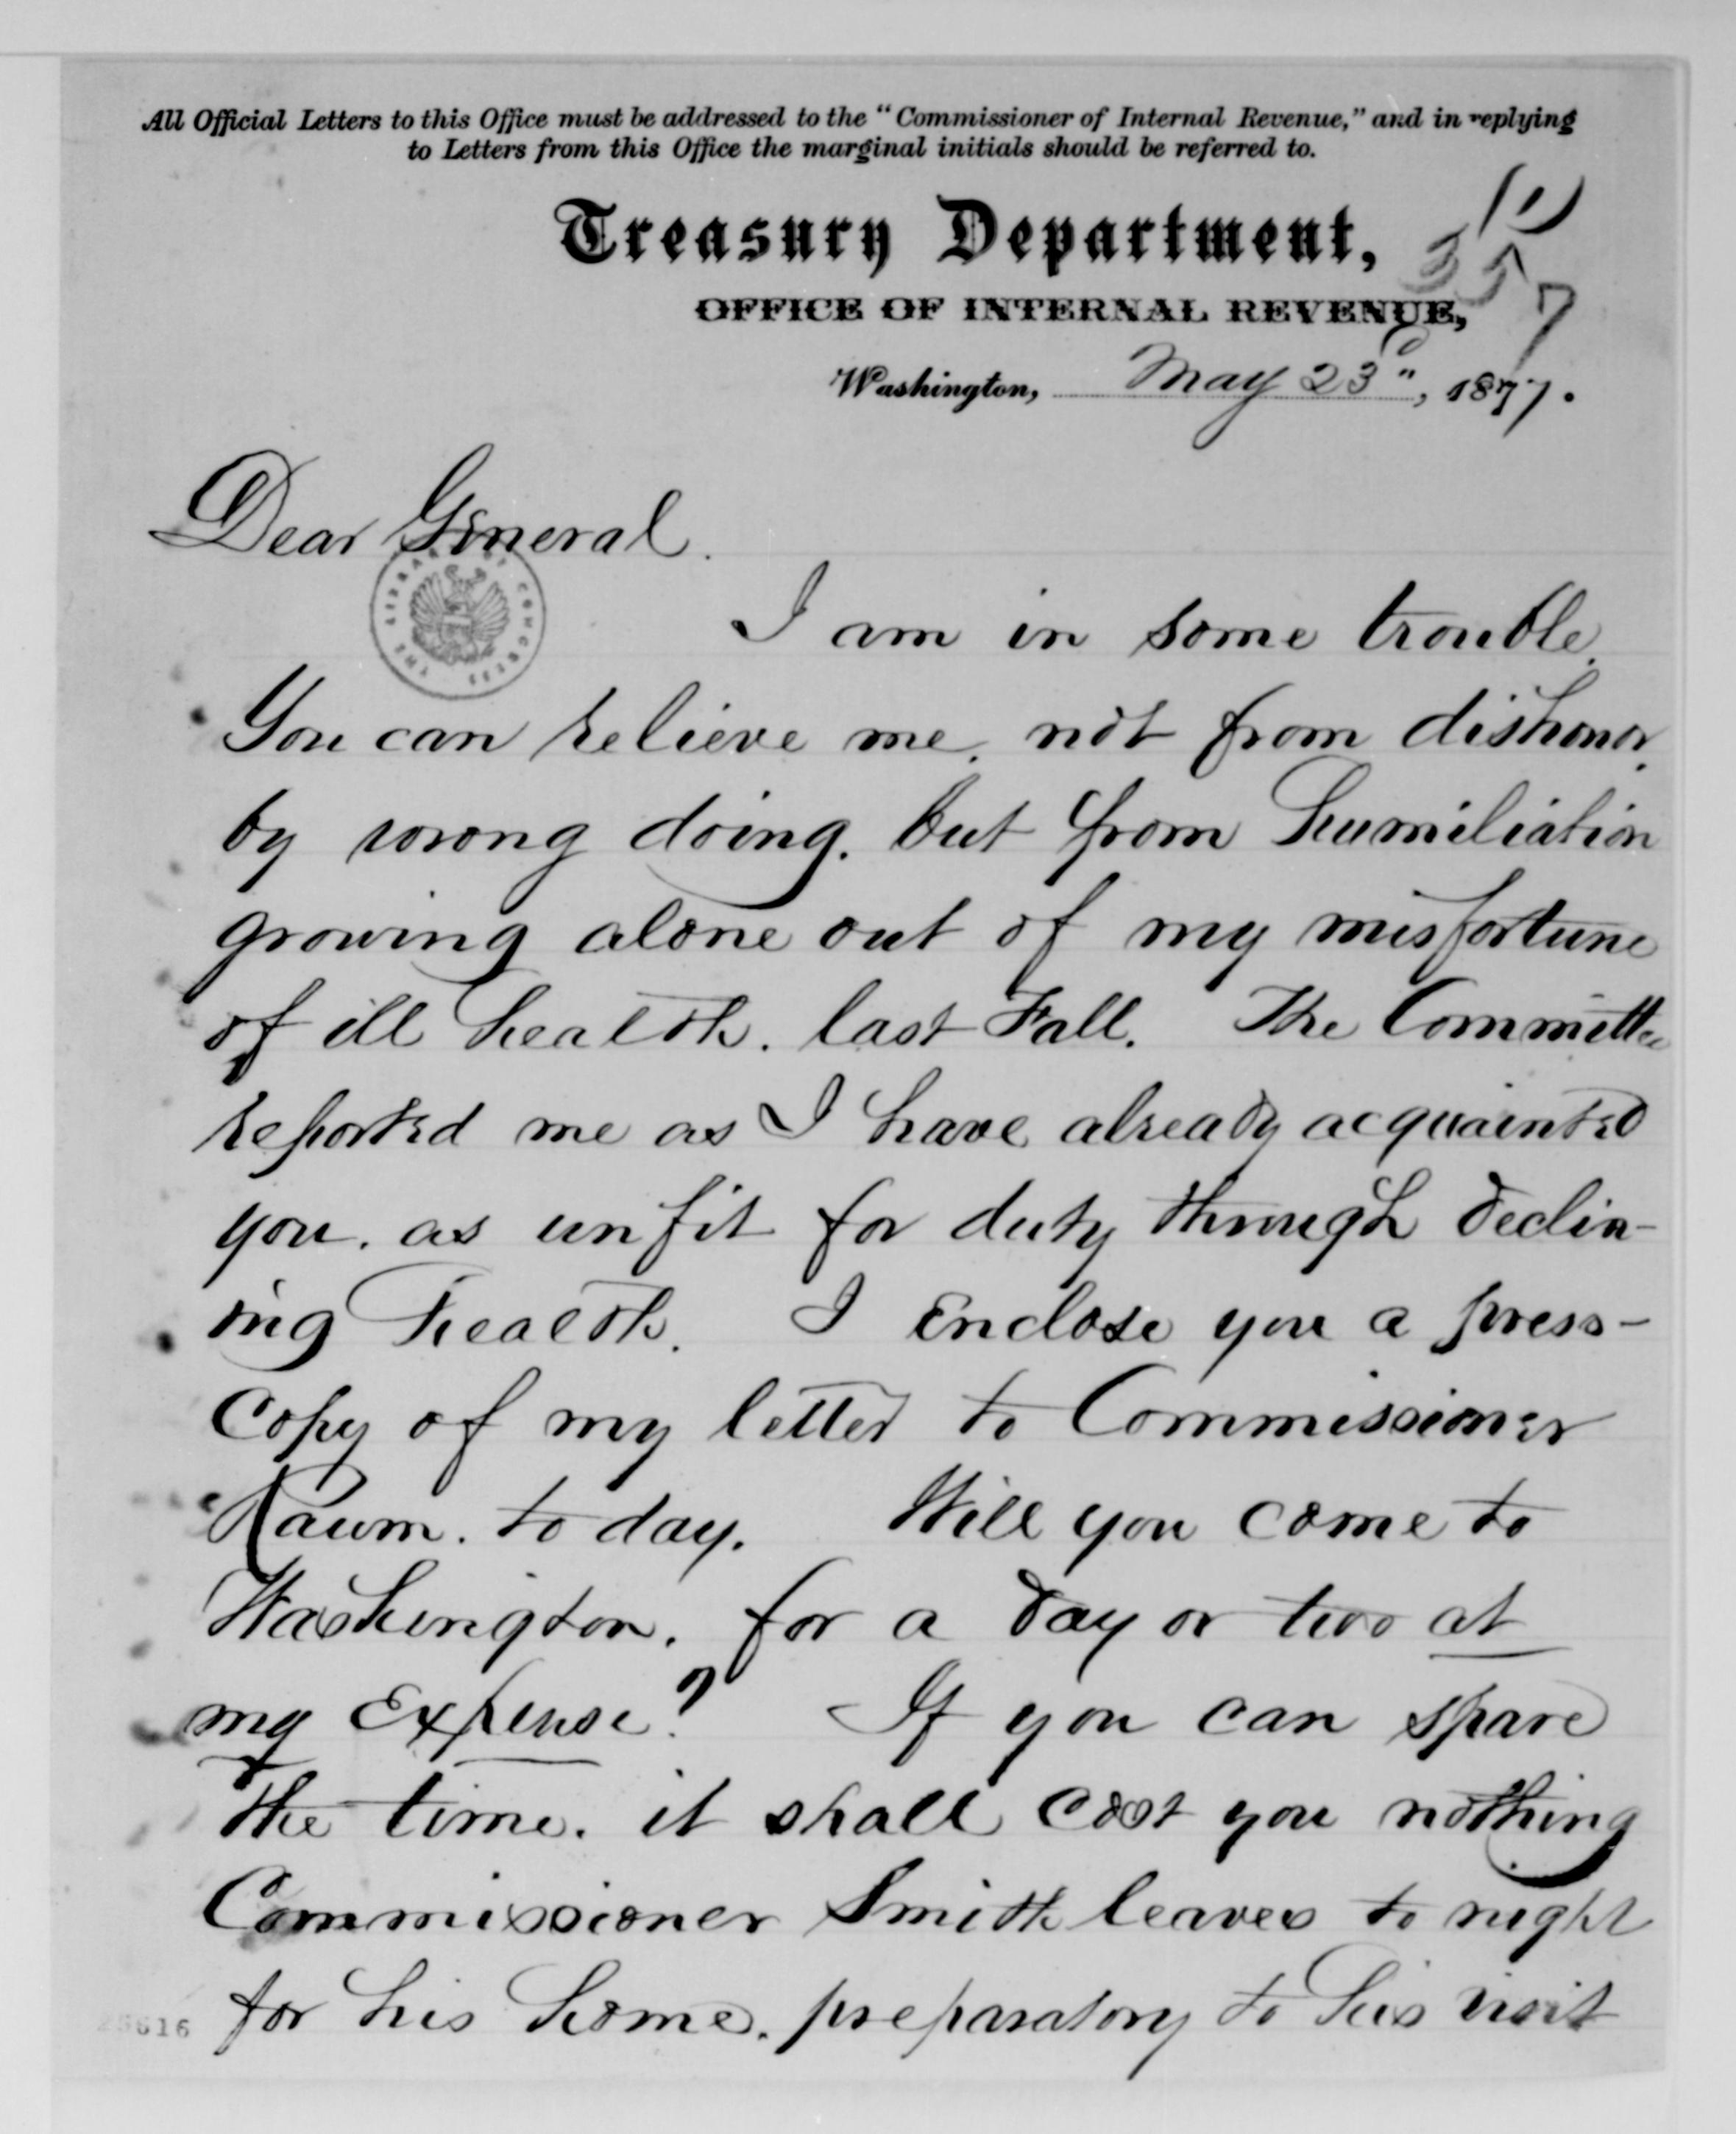 All Official Letters to this Office must be addressed to the "Commissioner of Internal Revenue," and in replying
to Letters from this Office the marginal initials should be referred to.
(1)
Treasury Department,
357
OFFICE OF INTERNAL REVENUE,
Washington, May 23d", 1877.
Dear General.
THE LIBRARY OF CONGRESS
I am in some trouble.
You can relieve me. not from dishonor.
by wrong doing. but from humiliation
growing alone out of my misfortune
of ill health. last Fall. The Committee
reported me as I have already acquainted
you. as unfit for duty through declin-
ing health. I Enclose you a press-
Copy of my letter to Commissioner
Raum. to day. Will you come to
Washington. for a day or two at
my Expense? If you can spare
the time. it shall cost you nothing
Commissioner Smith leaves to night
for his home. preparatory to his visit
25616